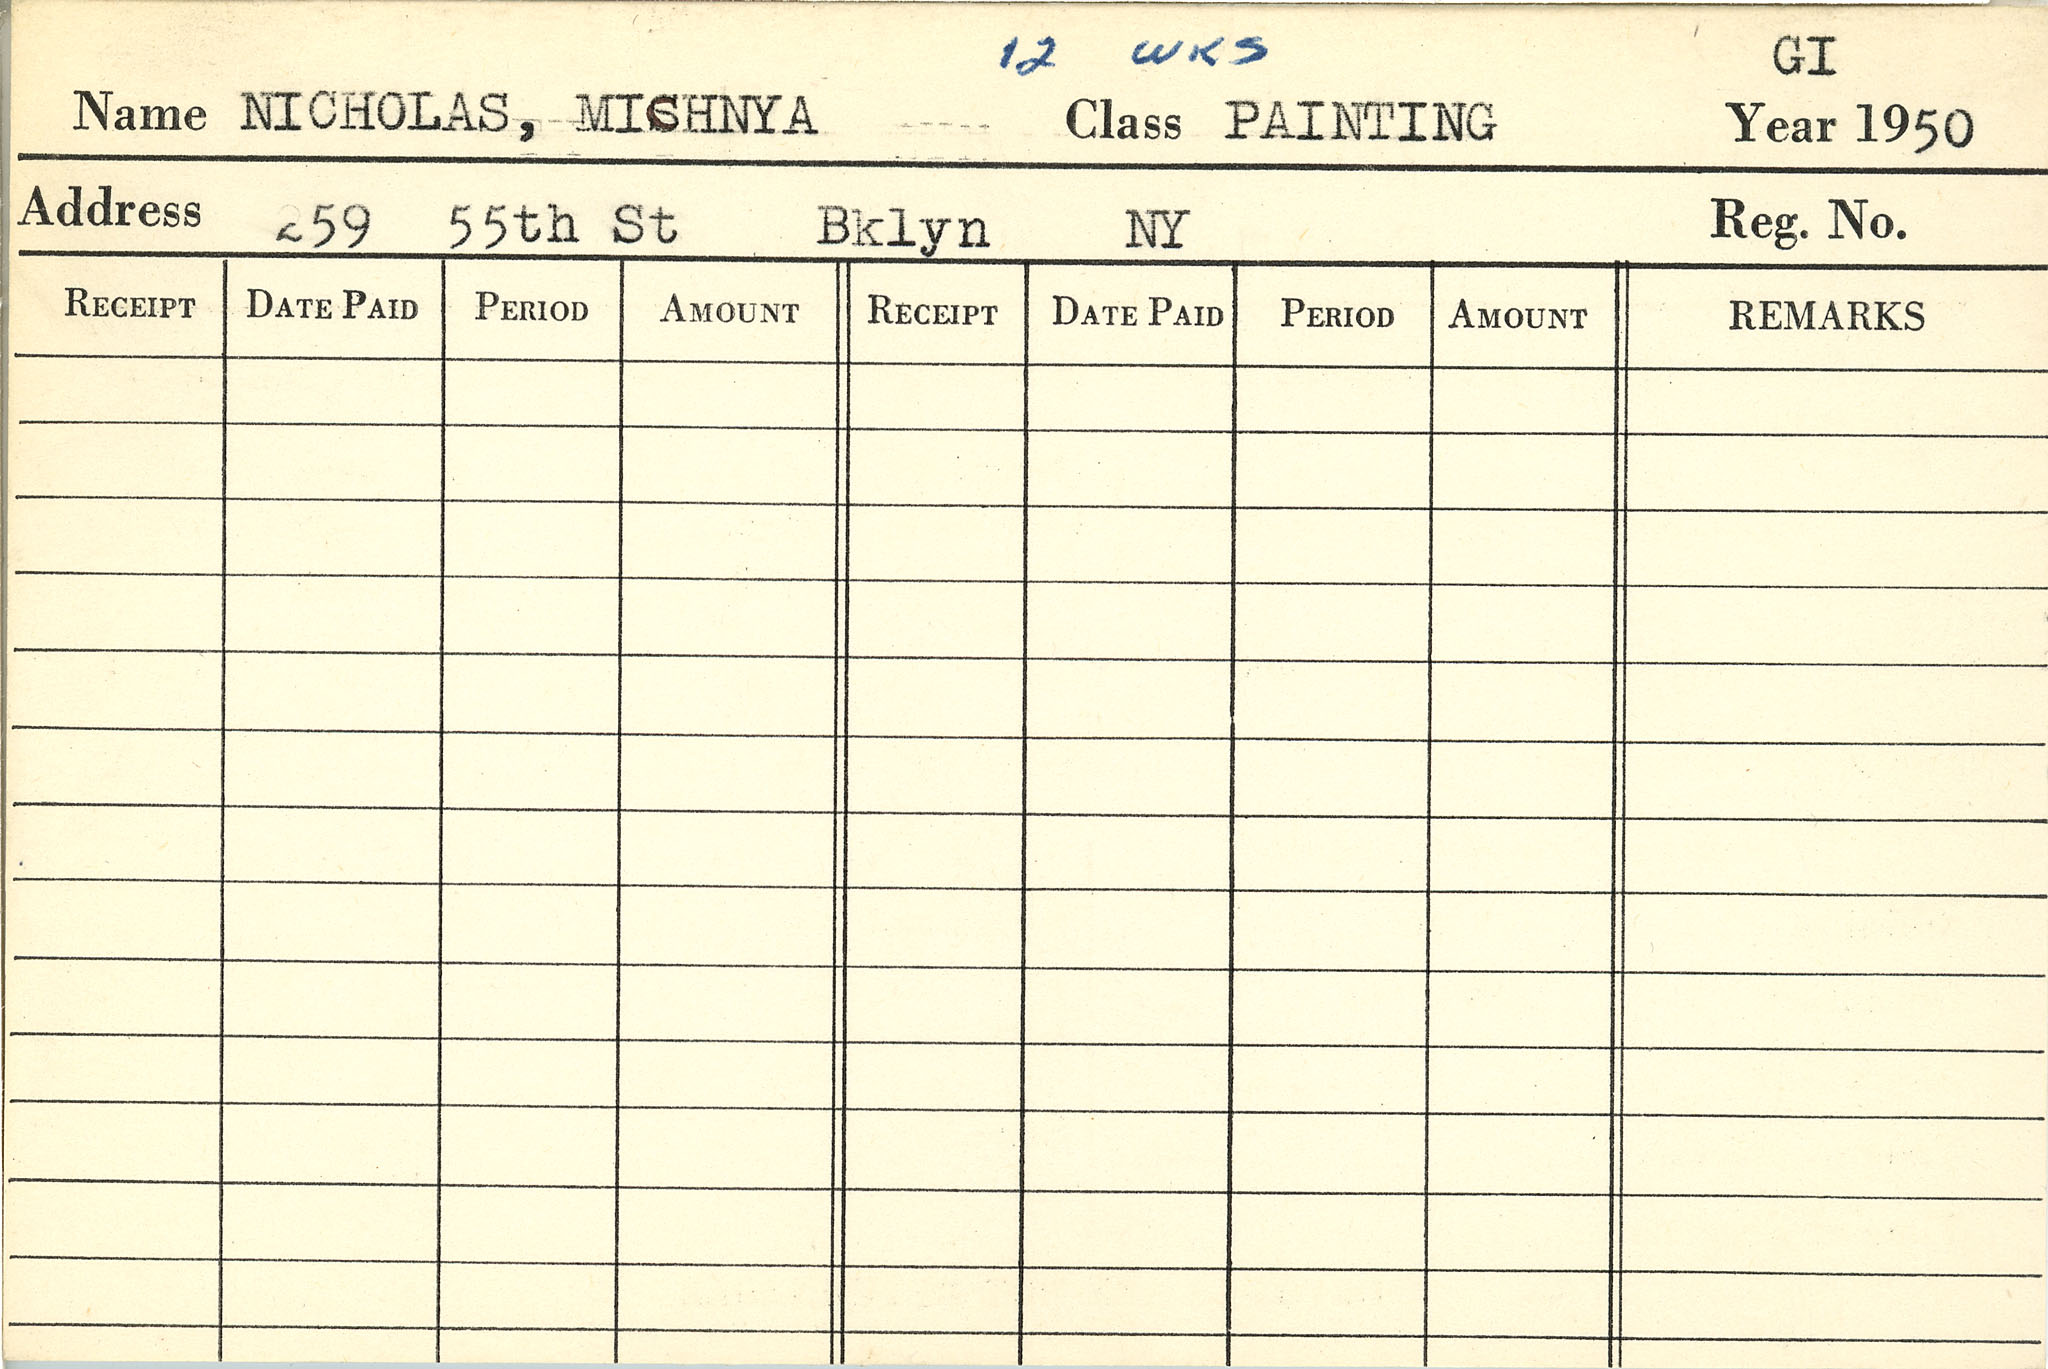 12 WKS GI
Name NICHOLAS, MISHNYA Class PAINTING Year 1950
Address 259 55th St Bklyn NY Reg. No.
RECEIPT DATE PAID PERIOD AMOUNT RECEIPT DATE PAID PERIOD AMOUNT REMARKS